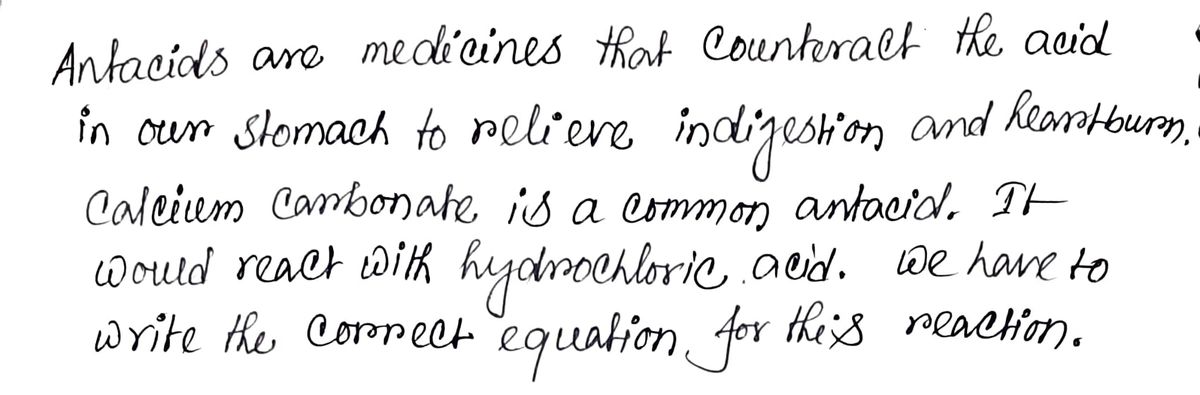 Antacids are medicines that counteract the acid
in our stomach to relieve indigestion and heartburn.
Calcium Carbonate is a common antacid. It
would react with hydrochloric acid. We have to
write the correct equation for this reaction.